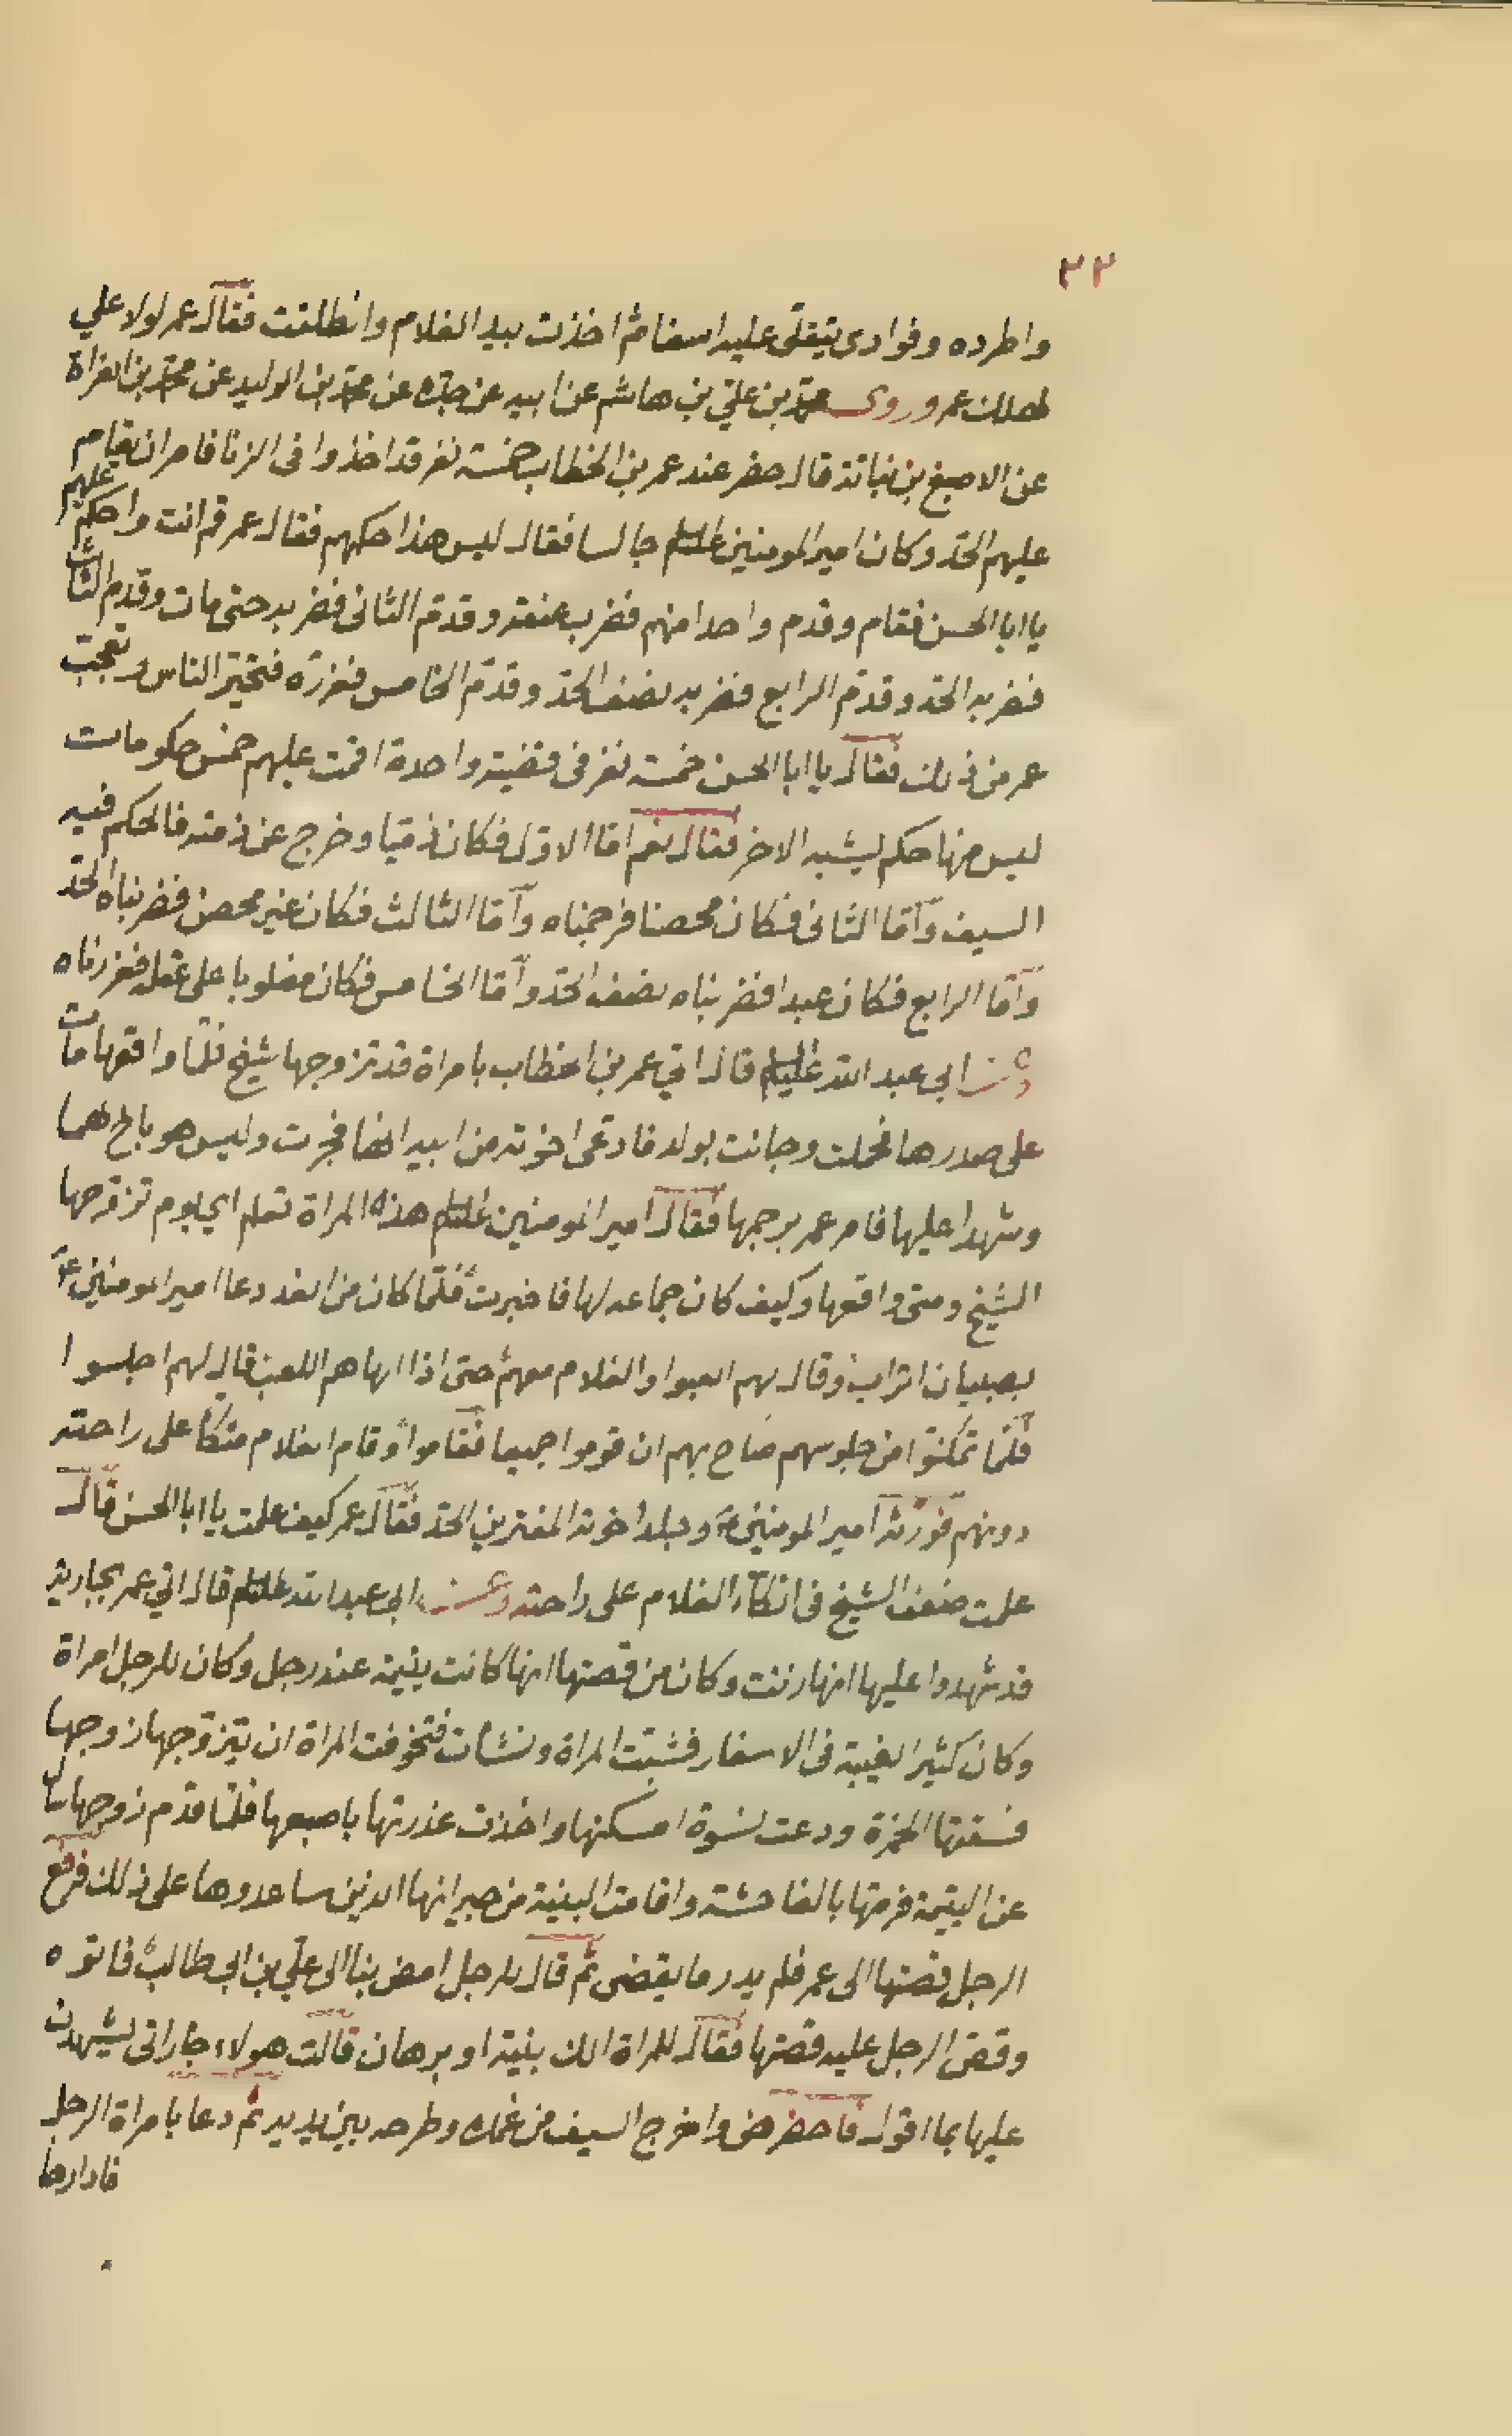 ٢٢
واطرده وفوادى يتقلى عليه اسفا ثم اخذت بيد الغلام وانطلقت فقال عمر لولا علي
لهلك عمر وروى محمد بن علي بن هاشم عن ابيه عن جده عن محمد بن الوليد عن محمد بن الفراة
عن الاصبغ بن نباتة قال حضر عند عمر بن الخطاب خمسة نفر قد اخذوا فى الزنا فامر ان يقام
عليهم الحد وكان امير المومنين عليه السلم جالسا فقال ليس هذا حكمهم فقال عمر قم انت واحكم عليهم
يا ابا الحسن فقام وقدم واحدا منهم فضرب عنقه وقدم الثانى فضربه حتى مات وقدم الثالث
فضربه الحد وقدم الرابع فضربه نصف الحد وقدم الخامس فعزره فتحير الناس وتعجب
عمر من ذلك فقال يا ابا الحسن خمسة نفر فى قضية واحدة اقمت عليهم خمس حكومات
ليس منها حكم يشبه الاخر فقال نعم اما الاول فكان ذميا وخرج عن ذمته فالحكم فيه
السيف واما الثانى فكان محصنا فرجمناه واما الثالث فكان غير محصن فضربناه الحد
واما الرابع فكان عبدا فضربناه نصف الحد واما الخامس فكان مغلوبا على عقله فعزرناه
وعن ابي عبد الله عليه السلم قال اتي عمر بن الخطاب بامراة قد تزوجها شيخ فلما واقعها مات
على صدرها فحملت وجائت بولد فادعى اخوته من ابيه انها فجرت وليس هو باخ لهما
وشهدا عليها فامر عمر برجمها فقال امير المومنين عليه السلم هذه المراة تعلم اي يوم تزوجها
الشيخ ومتى واقعها وكيف كان جماعه لها فاخبرت فلما كان من الغد دعا امير المومنين ع
بصبيان اتراب وقال لهم العبوا والغلام معهم حتى اذا الهاهم اللعب قال لهم اجلسوا
فلما تمكنوا من جلوسهم صاح بهم ان قوموا جميعا فقاموا وقام الغلام متكأ على راحته
دونهم فورثه امير المومنين ع وجلد اخوته المفترين الحد فقال عمر كيف علمت يا ابا الحسن قال
علمت ضعف الشيخ فى اتكآء الغلام على راحته وعن ابي عبد الله عليه السلم قال اتي عمر بجارية
قد شهدوا عليها انها زنت وكان من قصتها انها كانت يتيمة عند رجل وكان للرجل امراة
وكان كثير الغيبة فى الاسفار فشبت المراة ونشات فتخوفت المراة ان يتزوجها زوجها
فسقتها الخمرة ودعت نسوة امسكنها واخذت عذرتها باصبعها فلما قدم زوجها سال
عن اليتيمة فرمتها بالفاحشة واقامت البينة من جيرانها الذين ساعدوها على ذلك فرفع
الرجل قصتها الى عمر فلم يدر ما يقضى ثم قال للرجل امض بنا الى علي بن ابي طالب فاتوه
وقص الرجل عليه قصتها فقال للمراة الك بينة او برهان قالت هولاء جاراتى يشهدن
عليها بما اقول فاحضرهن واخرج السيف من غمده وطرحه بين يديه ثم دعا بامراة الرجل
فادارها